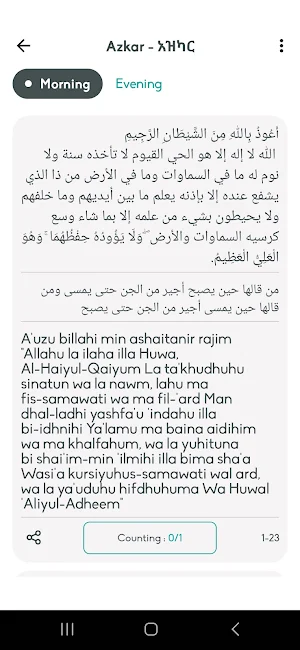 Azkar - አዝካር
Morning
Evening
أعُوذُ بِاللَّهِ مِنْ الشَّيْطَانِ الرَّجِيمِ
الله لا إله إلا هو الحي القيوم لا تأخذه سنة ولا
نوم له ما في السماوات وما في الأرض من ذا الذي
يشفع عنده إلا بإذنه يعلم ما بين أيديهم وما خلفهم
ولا يحيطون بشيء من علمه إلا بما شاء وسع
كرسيه السماوات والأرض ۖ وَلَا يَؤُودُهُ حِفْظُهُمَا ۚ وَهُوَ
الْعَلِيُّ الْعَظِيمُ.
من قالها حين يصبح أجير من الجن حتى يمسى ومن
قالها حين يمسى أجير من الجن حتى يصبح
A'uzu billahi min ashaitanir rajim
"Allahu la ilaha illa Huwa,
Al-Haiyul-Qaiyum La ta'khudhuhu
sinatun wa la nawm, lahu ma
fis-samawati wa ma fil-'ard Man
dhal-ladhi yashfa'u 'indahu illa
bi-idhnihi Ya'lamu ma baina aidihim
wa ma khalfahum, wa la yuhituna
bi shai'im-min 'ilmihi illa bima sha'a
Wasi'a kursiyuhus-samawati wal ard,
wa la ya'uduhu hifdhuhuma Wa Huwal
'Aliyul-Adheem"
Counting : 0/1
1-23